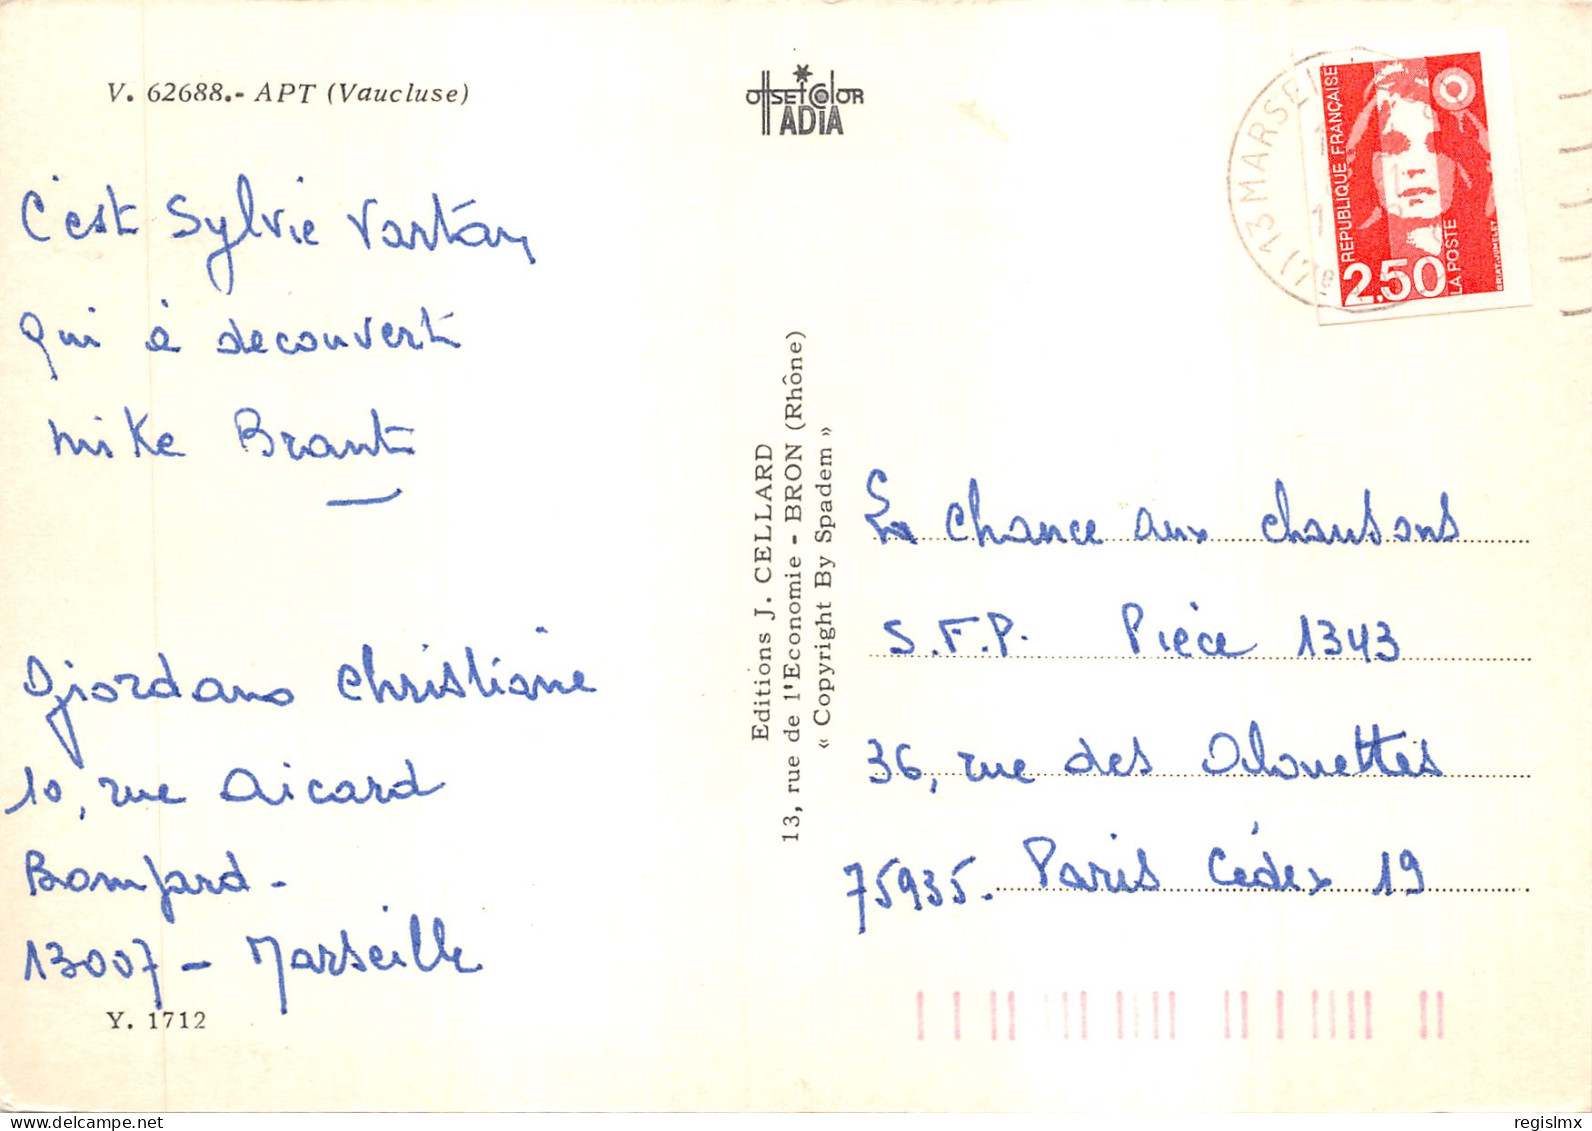 V. 62688.- APT (Vaucluse)
OffSETCOLOR
ADIA
C'est Sylvie Vartan
qui à decouvert
Mike Brant
Giordano Christiane
10, rue Aicard
Bompard -
13007 - Marseille
Y. 1712
Editions J. CELLARD
13, rue de l'Economie - BRON (Rhône)
« Copyright By Spadem »
13 MARSEI
REPUBLIQUE FRANÇAISE
2,50
LA POSTE
BRIAT-JUMELET
La Chance aux chansons
S.F.P. Pièce 1343
36, rue des Alouettes
75935. Paris Cédex 19
delcampe.net
regislmx